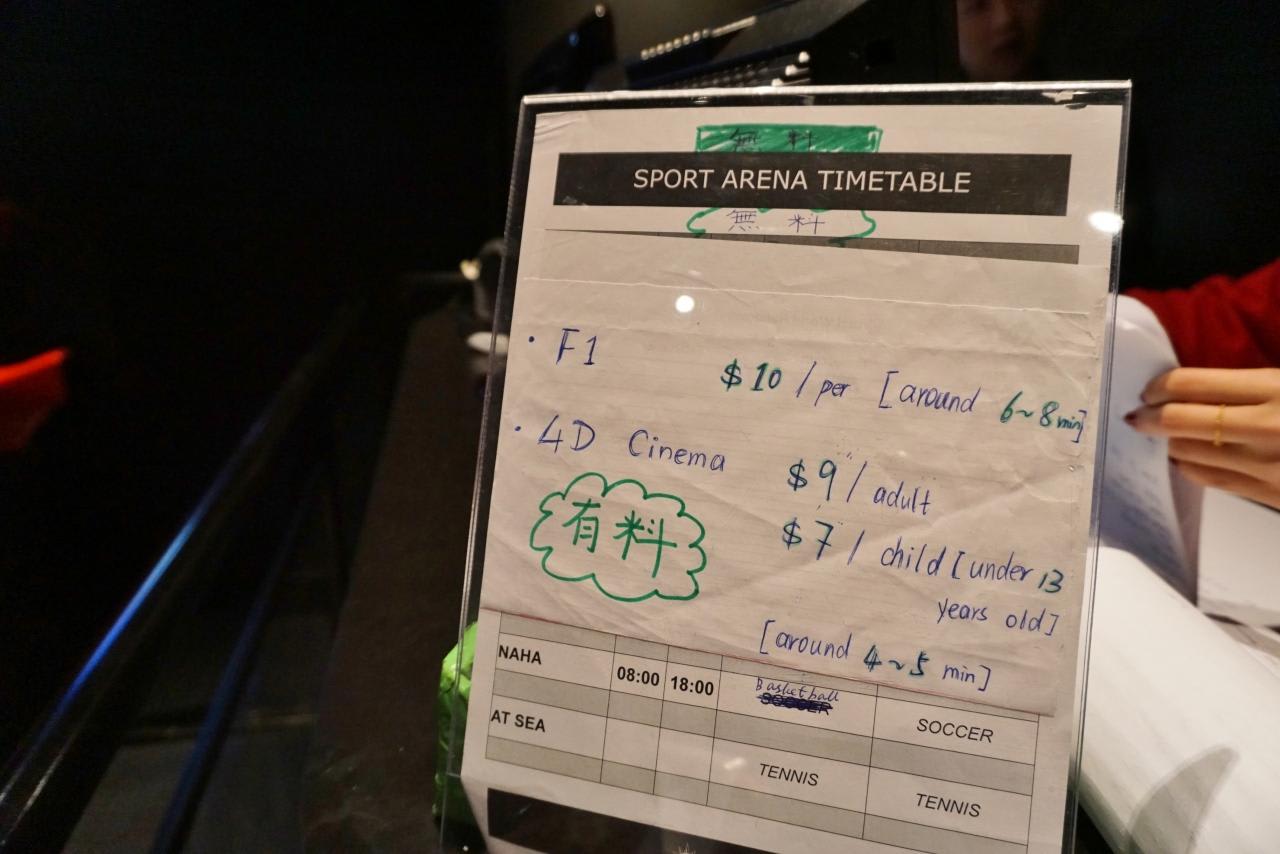 無 料
SPORT ARENA TIMETABLE
無 料
· F1 $10 / per [around 6~8 min]
· 4D Cinema $9 / adult
有料 $7 / child [under 13
years old]
[around 4~5 min]
NAHA 08:00 18:00 Basketball SOCCER
SOCCER
AT SEA TENNIS TENNIS